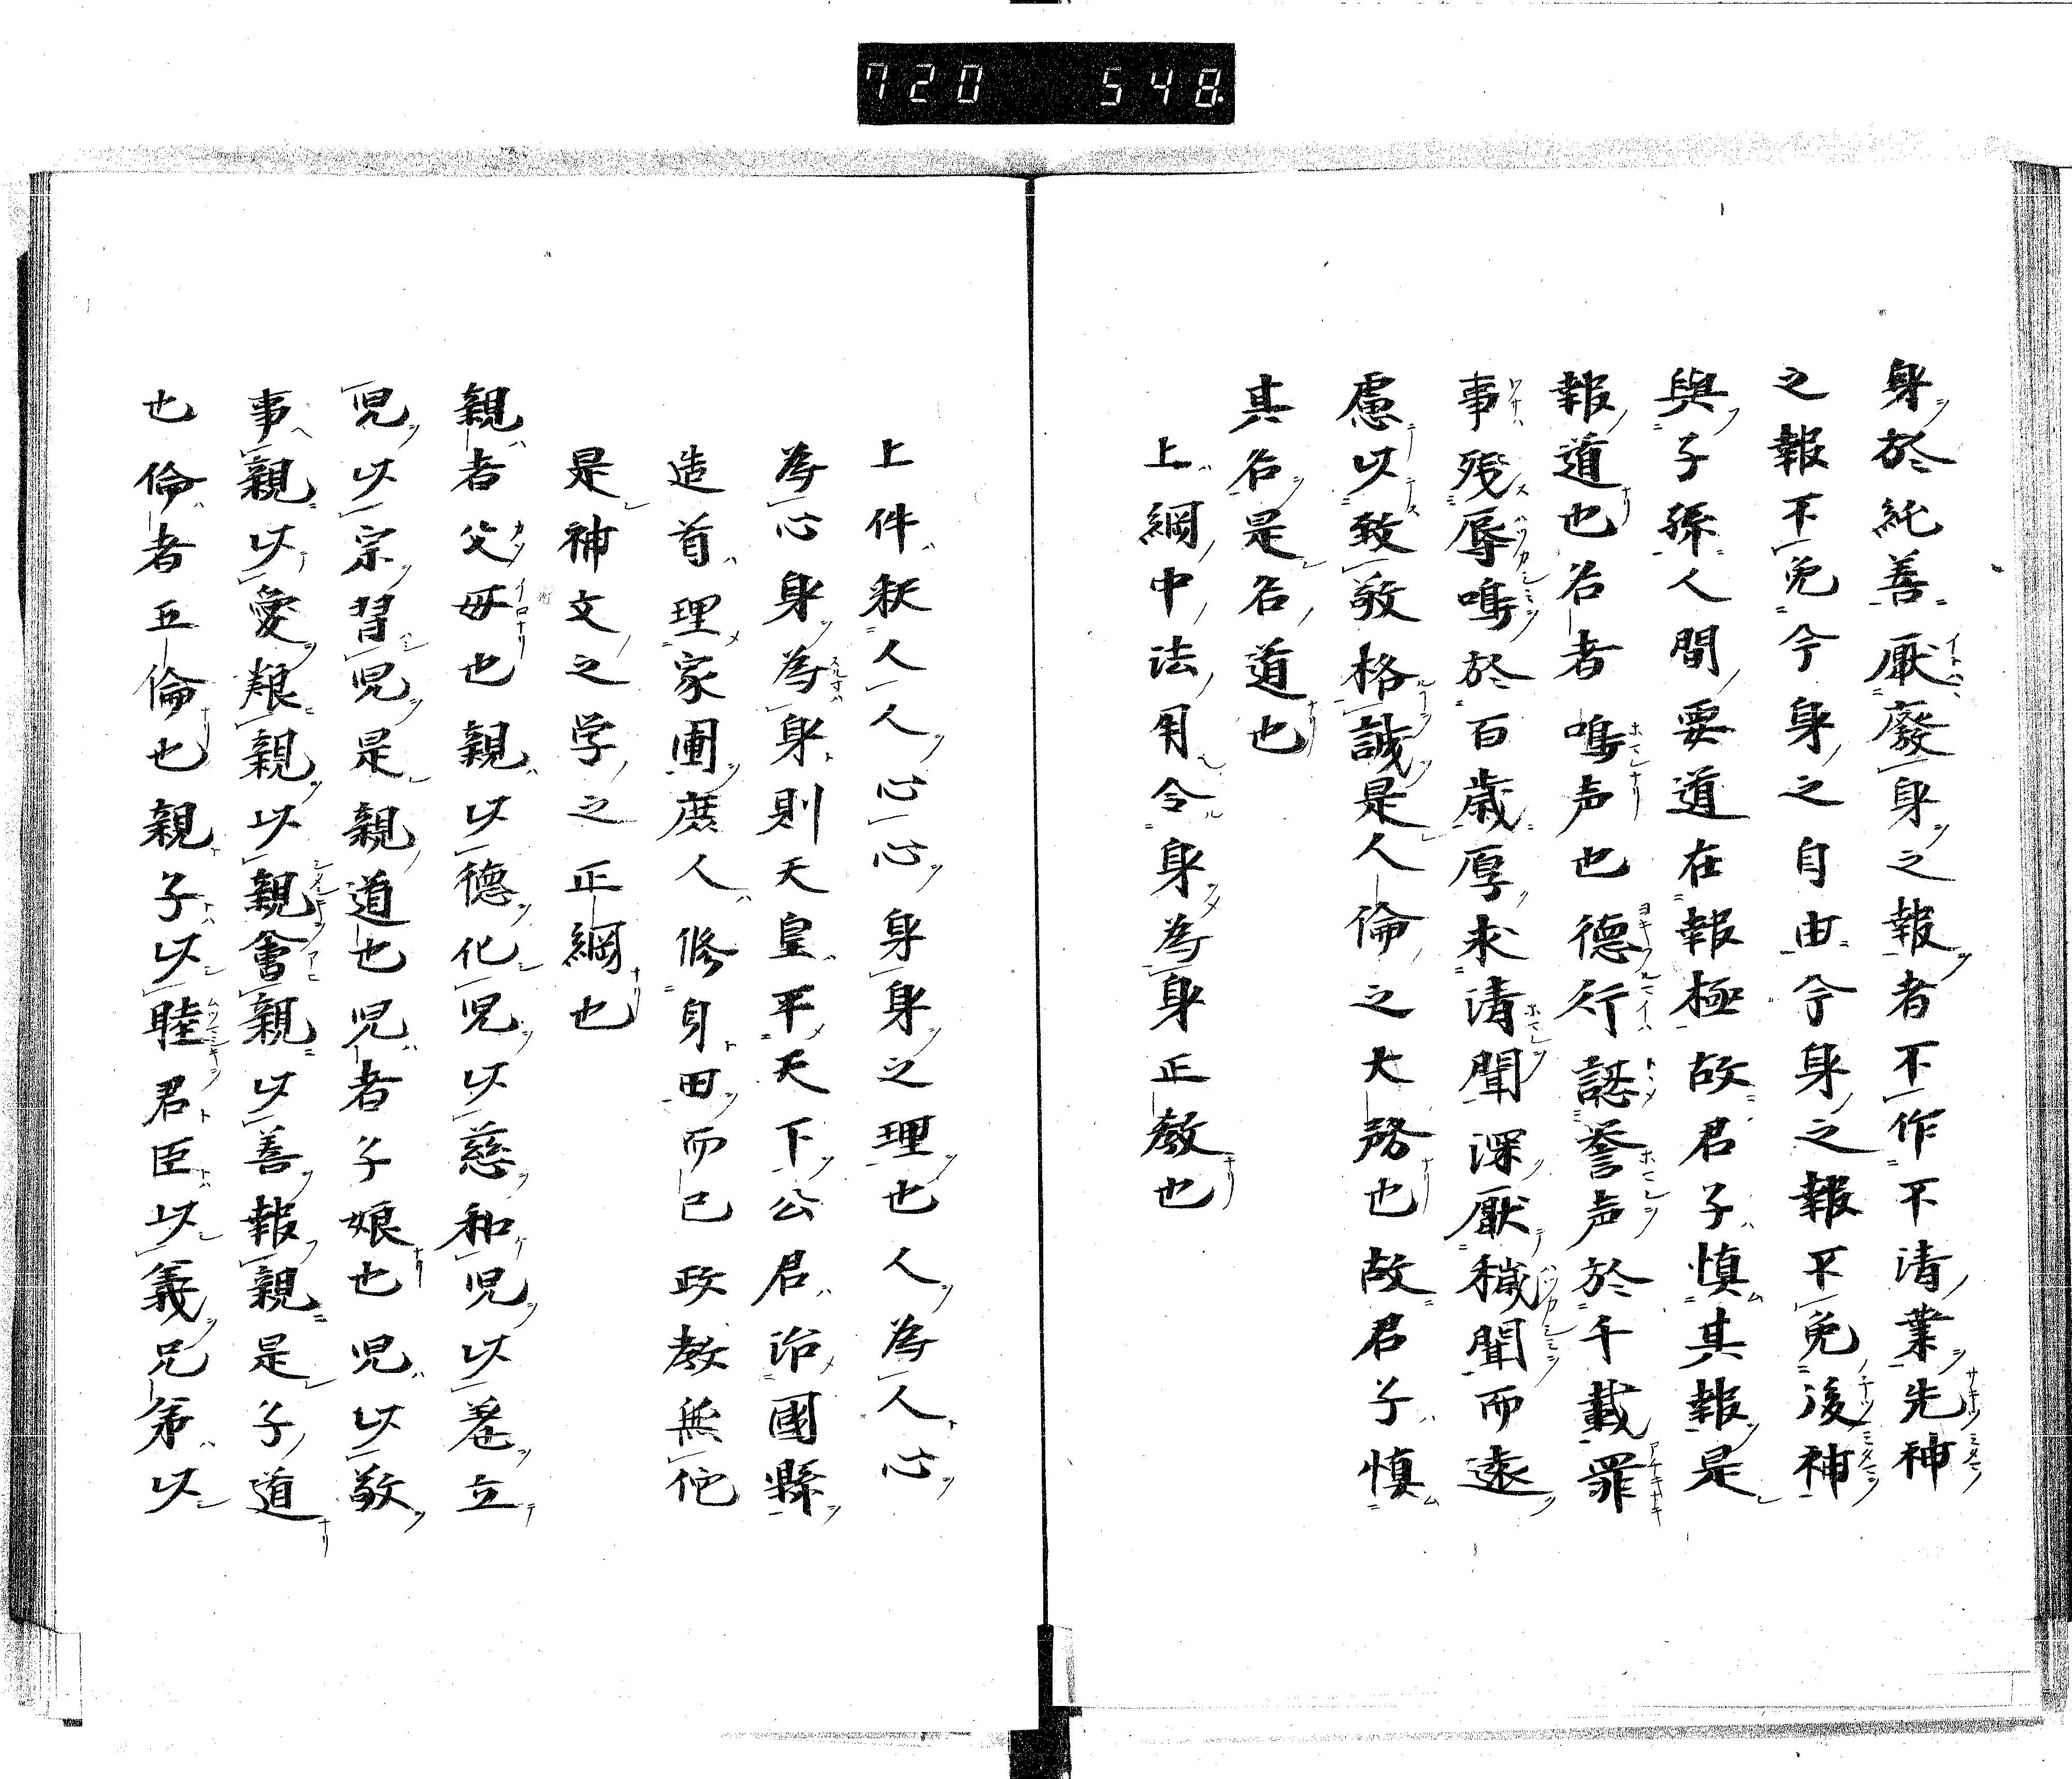 720 548
身於純善厭廢身之報者不作不清業先神
之報不免今身之自由今身之報不免後神
與子孫人間要道在報極故君子慎其報是
報道也名者鳴声也德行認誉声於千載罪
事残辱鳴於百歳厚求清聞深厭穢聞而遠
慮以致敬格誠是人倫之大務也故君子慎
其名是名道也
上綱中法用令身為身正教也
上件 人人心心身身之理也人為人心
為心身為身則天皇平天下公君治國縣
造首理家圃庶人修身田而已政教無佗
是神文之学之正綱也
親者父母也親以德化児以慈和児以 立
児以宗習児是親道也児者子娘也児以敬
事親以愛 親以親會親以善報親是子道
也倫者五倫也親子以睦君臣以義兄弟以